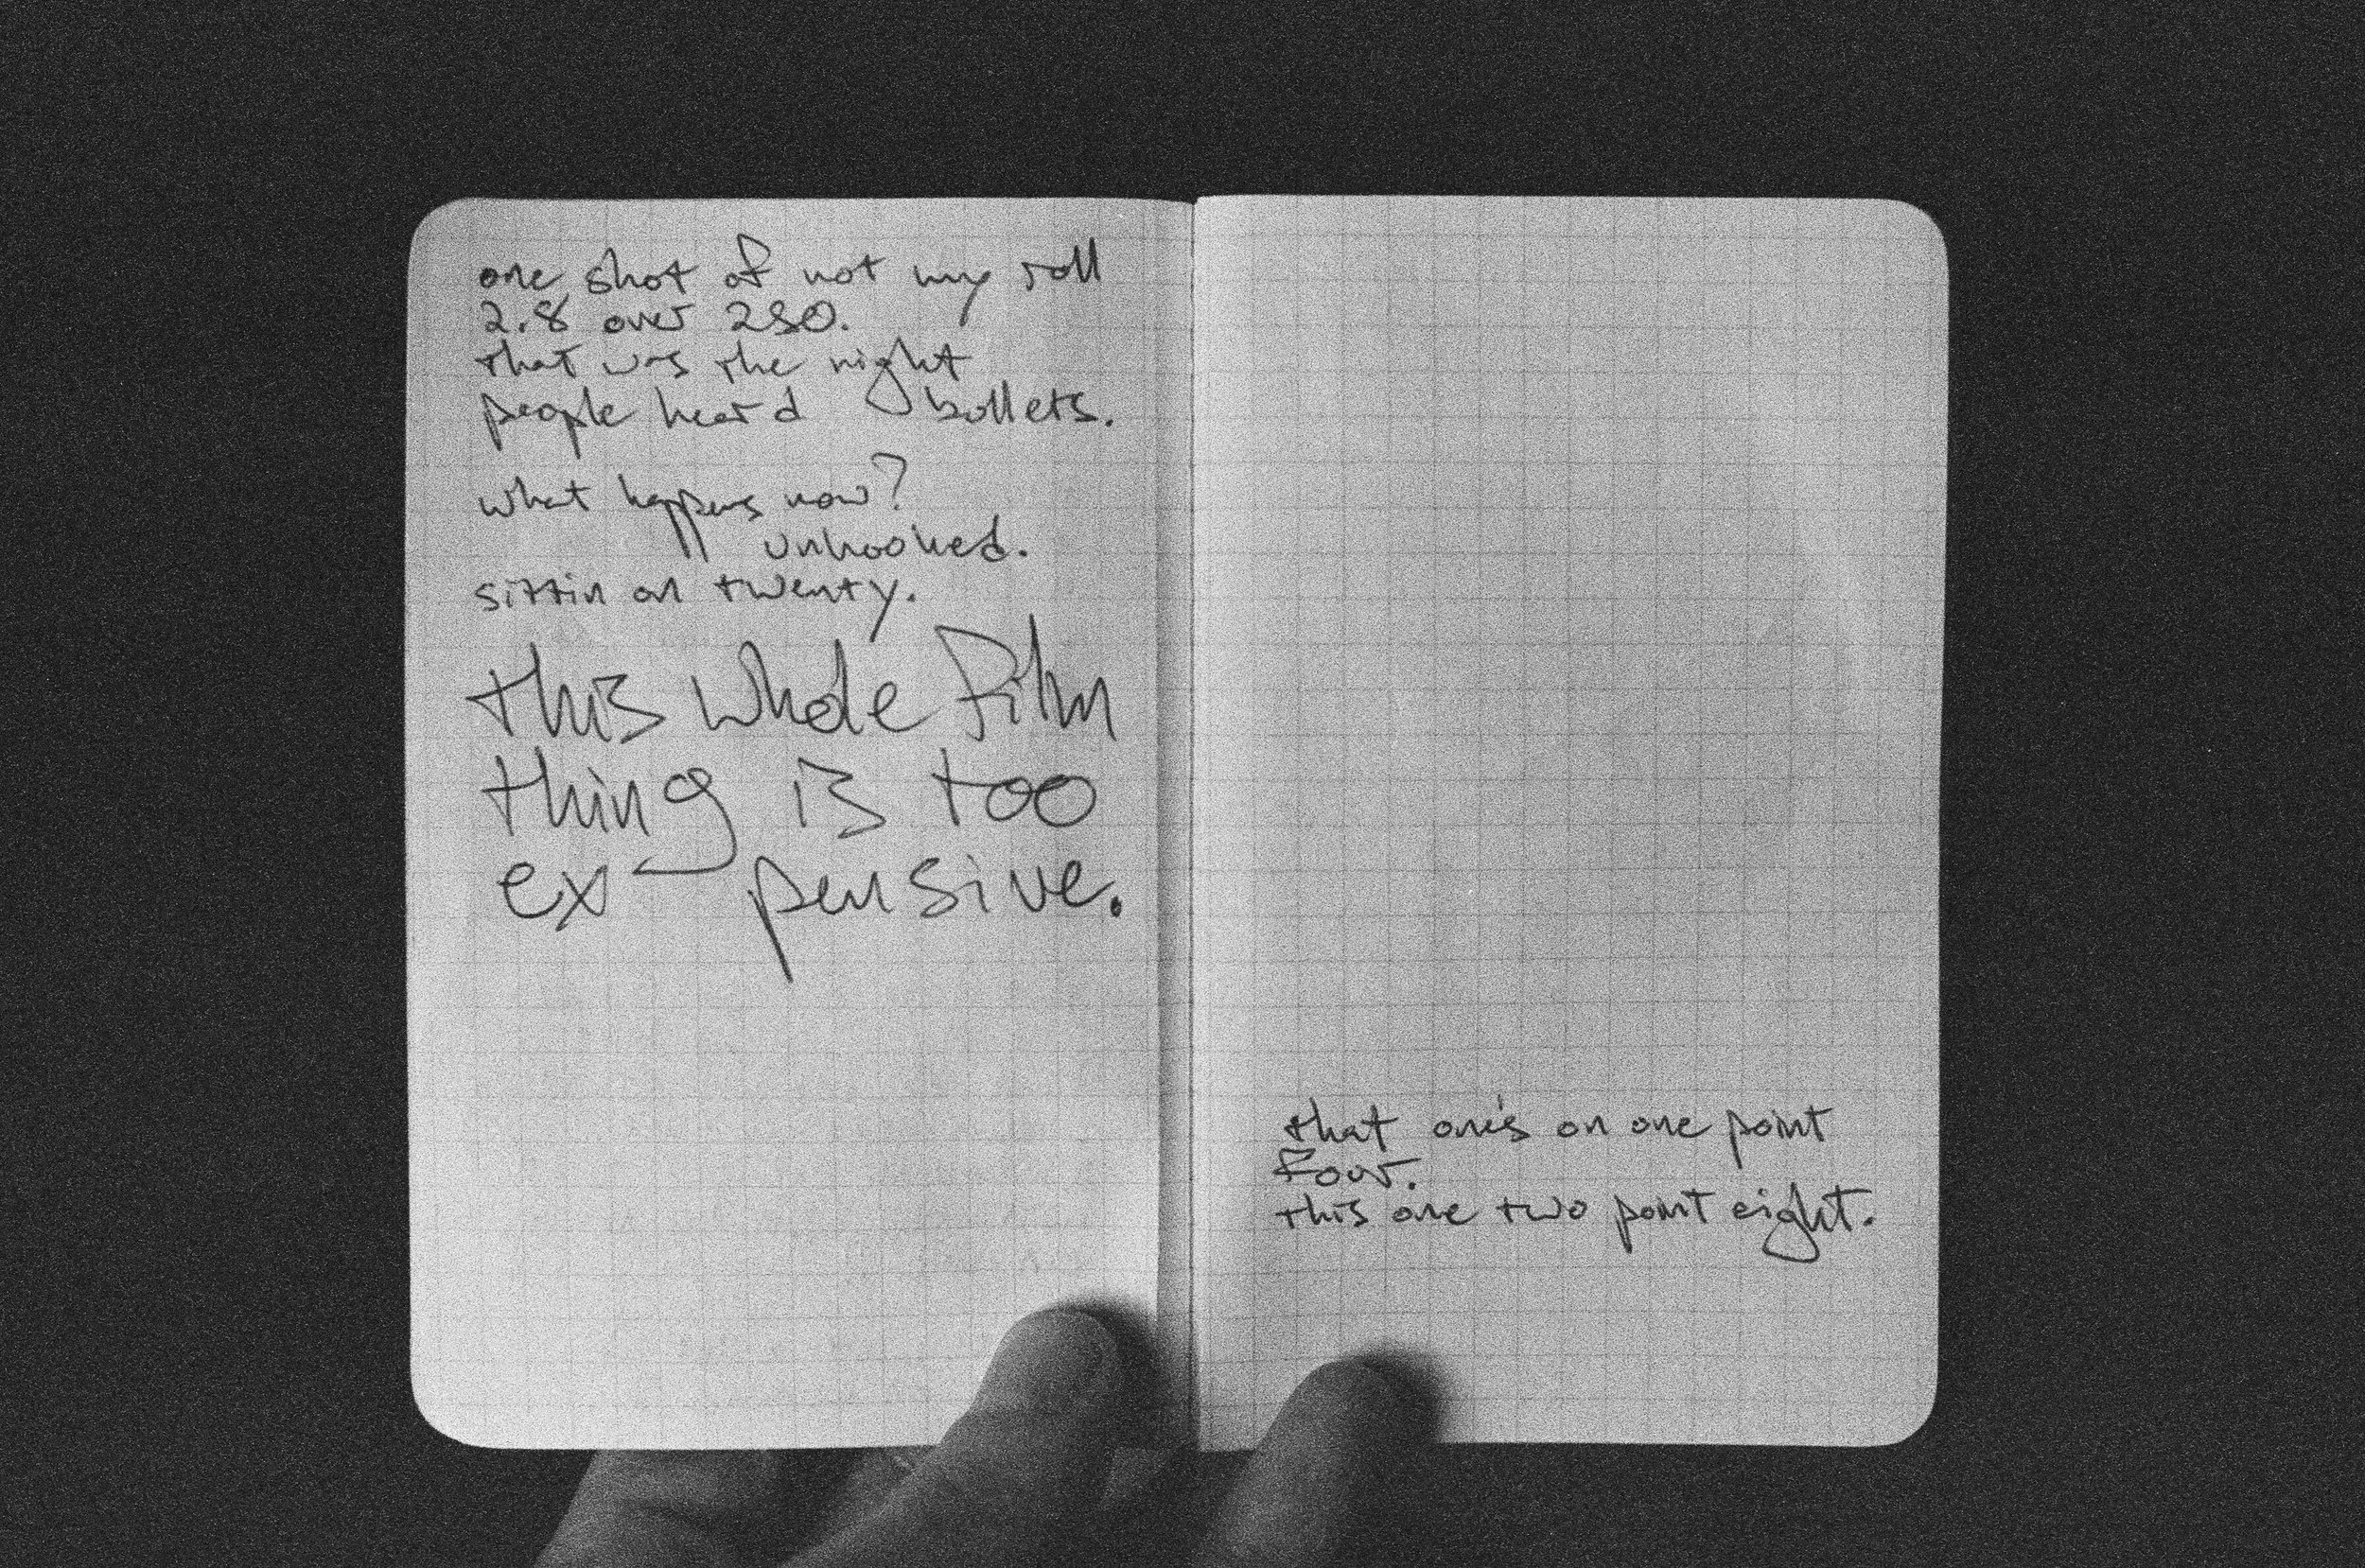 one shot of not my roll
2.8 over 250.
that was the night
people heard bullets.
what happens now?
unhooked.
sittin on twenty.
this whole film
thing is too
ex-pensive.
that one's on one point
four.
this one two point eight.